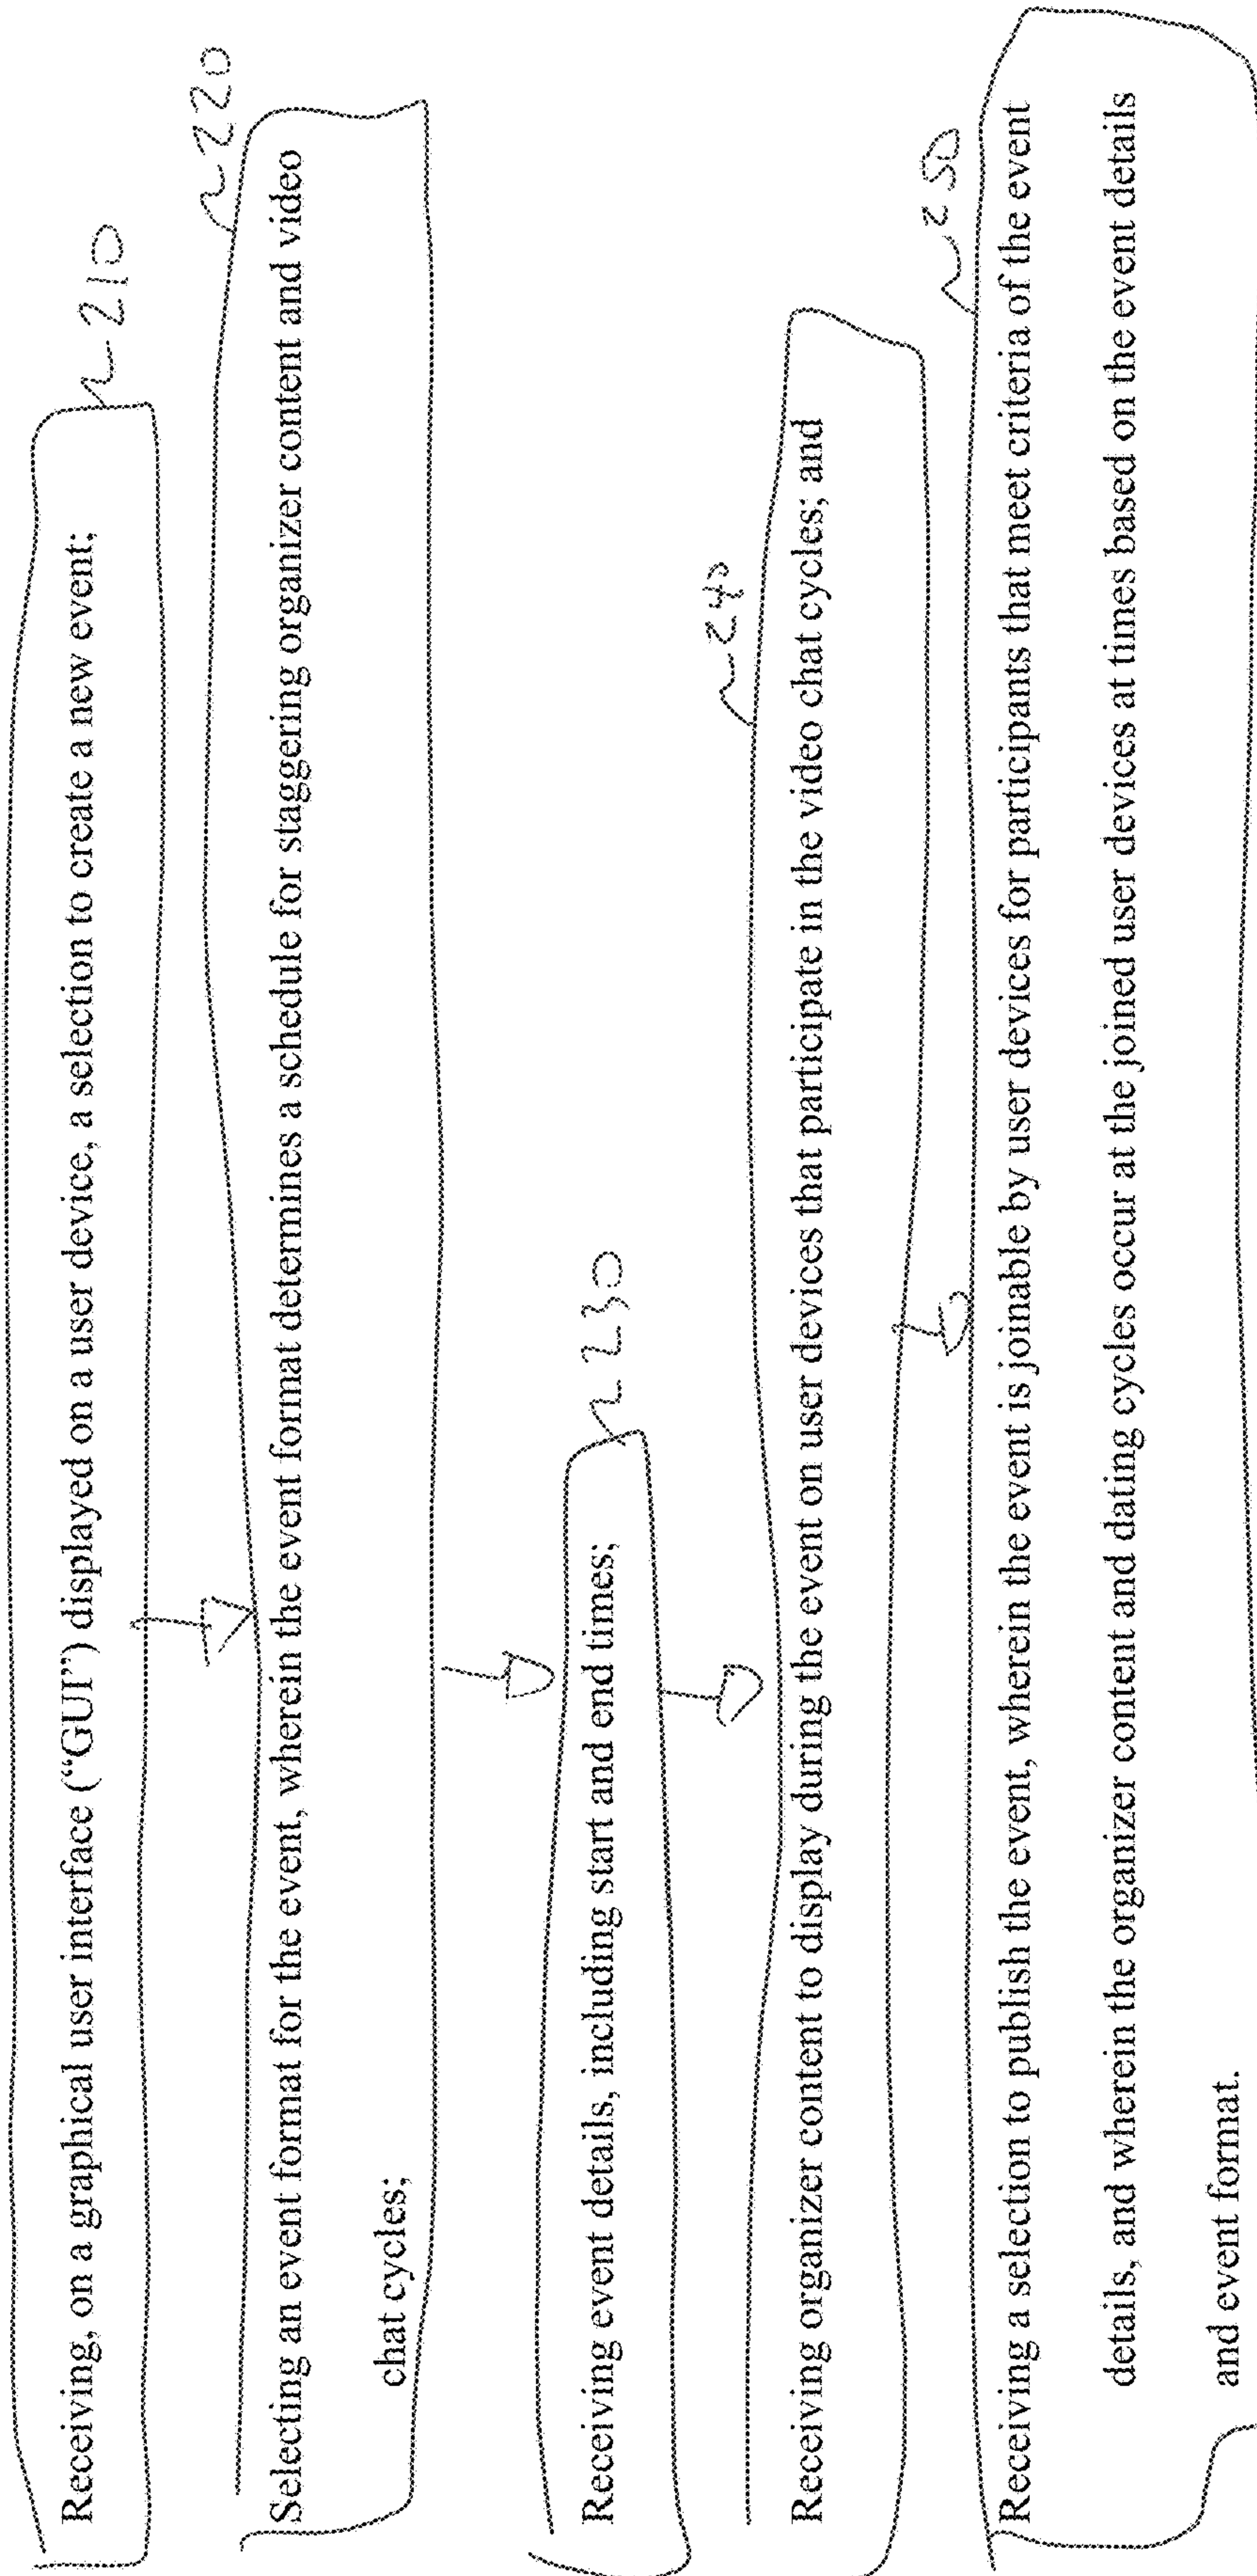 210
Receiving, on a graphical user interface (“GUI”) displayed on a user device, a selection to create a new event;
220
Selecting an event format for the event, wherein the event format determines a schedule for staggering organizer content and video
chat cycles;
230
Receiving event details, including start and end times;
240
Receiving organizer content to display during the event on user devices that participate in the video chat cycles; and
250
Receiving a selection to publish the event, wherein the event is joinable by user devices for participants that meet criteria of the event
details, and wherein the organizer content and dating cycles occur at the joined user devices at times based on the event details
and event format.